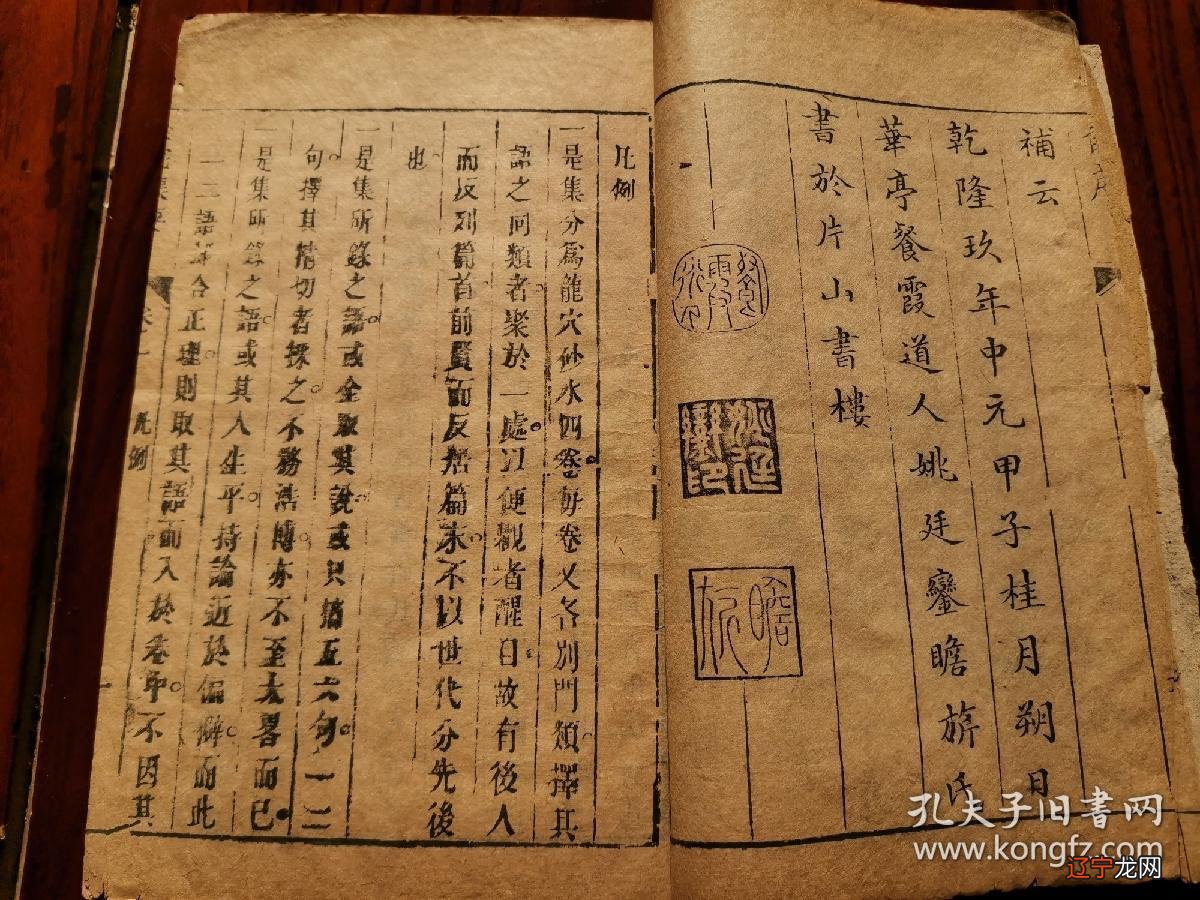 補云
乾隆玖年中元甲子桂月朔日
華亭餐霞道人姚廷鑾瞻旂氏
書於片山書樓
凡例
一是集分爲龍穴砂水四卷每卷又各別門類擇其
語之同類者聚於一處以便觀者醒目故有後人
而反列篇首前賢而反居篇末不以世代分先後
也
一是集所錄之語或全取其說或只摘五六句一二
句擇其精切者採之不務浩博亦不至太畧而已
一是集所錄之語或其人生平持論近於偏僻而此
一二語合正理則取其語而入於卷中不因其
卷一 凡例
孔夫子旧书网
www.kongfz.com
辽宁龙网